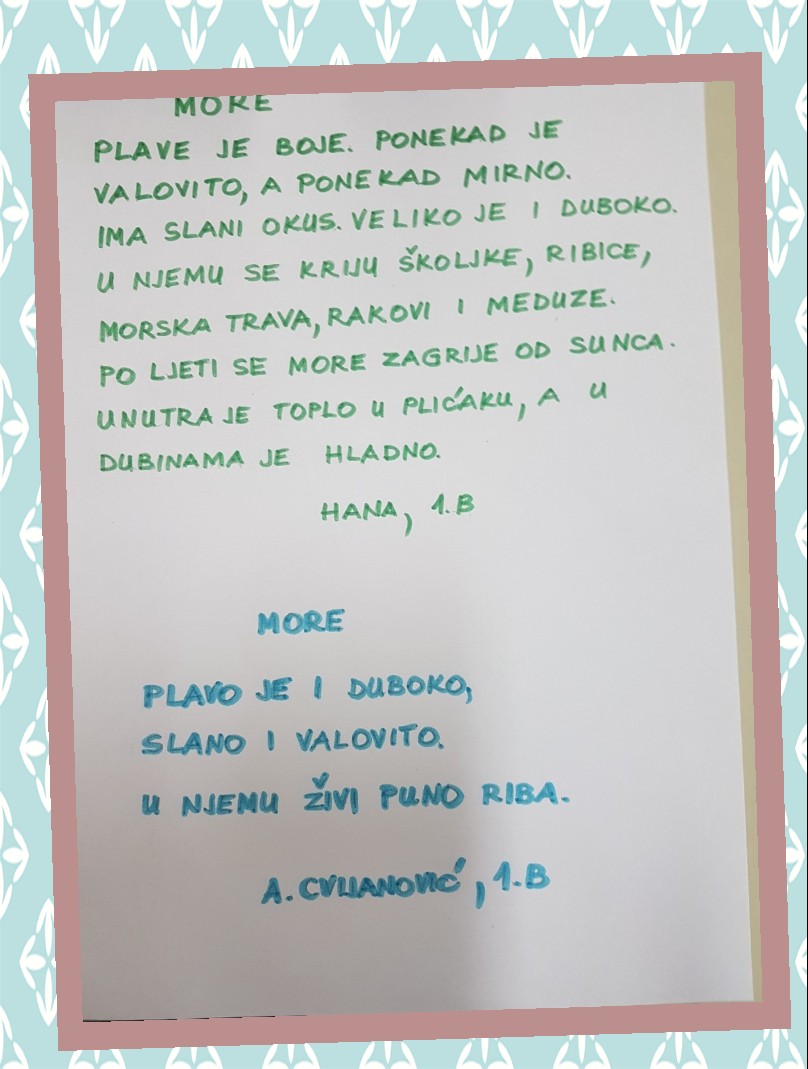 MORE
PLAVE JE BOJE. PONEKAD JE
VALOVITO, A PONEKAD MIRNO.
IMA SLANI OKUS. VELIKO JE I DUBOKO.
U NJEMU SE KRIJU ŠKOLJKE, RIBICE,
MORSKA TRAVA, RAKOVI I MEDUZE.
PO LJETI SE MORE ZAGRIJE OD SUNCA.
UNUTRA JE TOPLO U PLIĆAKU, A U
DUBINAMA JE HLADNO.
HANA, 1.B
MORE
PLAVO JE I DUBOKO,
SLANO I VALOVITO.
U NJEMU ŽIVI PUNO RIBA.
A. CVIJANOVIĆ, 1.B